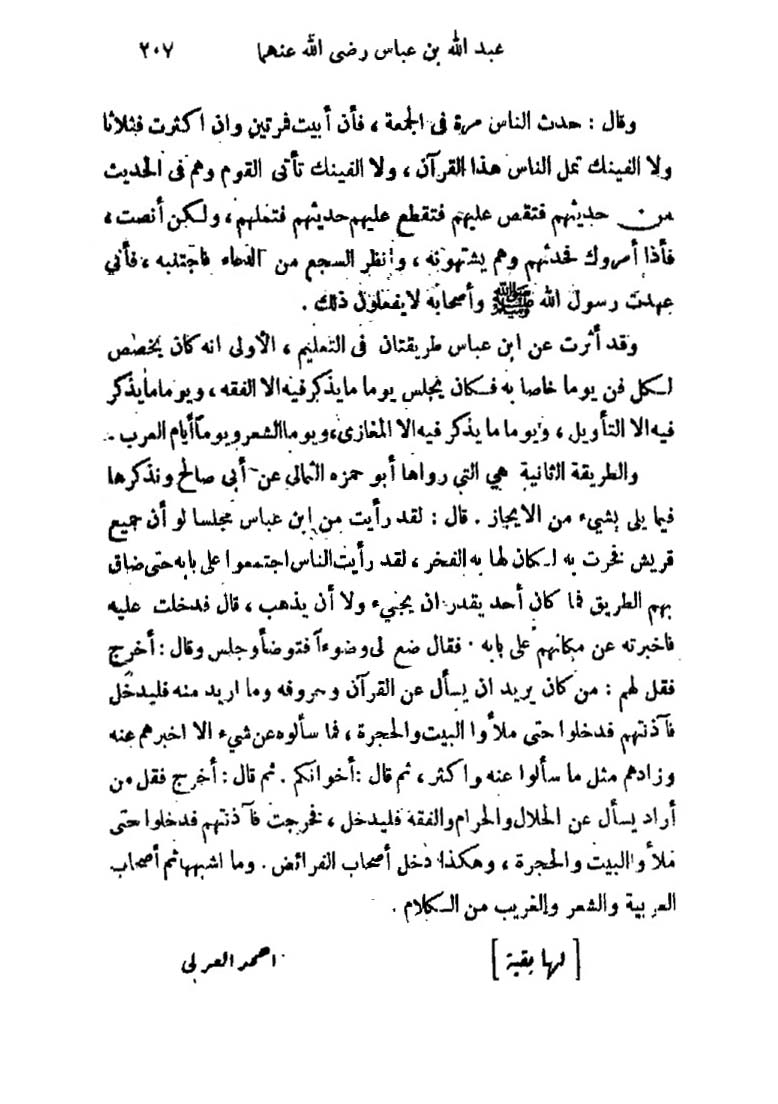 عبد الله بن عباس رضى الله عنهما ٢٠٧
وقال : حدث الناس مرة فى الجمعة ، فأن أبيت فمرتين وان اكثرت فثلاثا
ولا الفينك تمل الناس هذا القرآن ، ولا الفينك تأتى القوم وهم فى الحديث
من حديثهم فتقص عليهم فتقطع عليهم حديثهم فتملهم ، ولكن أنصت ،
فأذا أمروك فحدثهم وهم يشتهونه ، وانظر السجع من الدعاء فاجتنبه ، فأني
عهدت رسول الله ﷺ وأصحابه لا يفعلون ذلك .
وقد أثرت عن ابن عباس طريقتان فى التعليم ، الأولى انه كان يخصص
لكل فن يوما خاصا به فكان يجلس يوما ما يذكر فيه الا الفقه ، ويوما ما يذكر
فيه الا التأويل ، ويوما ما يذكر فيه الا المغازى ، ويوما الشعر ويوماً أيام العرب .
والطريقة الثانية هي التي رواها أبو حمزه الثمالى عن أبى صالح ونذكرها
فيما يلى بشيء من الايجاز . قال : لقد رأيت من ابن عباس مجلسا لو أن جميع
قريش فخرت به لكان لها به الفخر ، لقد رأيت الناس اجتمعوا على بابه حتى ضاق
بهم الطريق فما كان أحد يقدر ان يجيء ولا أن يذهب ، قال فدخلت عليه
فاخبرته عن مكانهم على بابه . فقال ضع لى وضوءاً فتوضأ وجلس وقال : أخرج
فقل لهم : من كان يريد ان يسأل عن القرآن وحروفه وما اريد منه فليدخل
فآذنتهم فدخلوا حتى ملأوا البيت والحجرة ، فما سألوه عن شيء الا اخبرهم عنه
وزادهم مثل ما سألوا عنه واكثر ، ثم قال : أخوانكم . ثم قال : أخرج فقل من
أراد يسأل عن الحلال والحرام والفقه فليدخل ، فخرجت فآذنتهم فدخلوا حتى
ملأوا البيت والحجرة ، وهكذا دخل أصحاب الفرائض . وما اشبهها ثم أصحاب
العربية والشعر والغريب من الكلام .
[ لها بقية ] احمد العربى